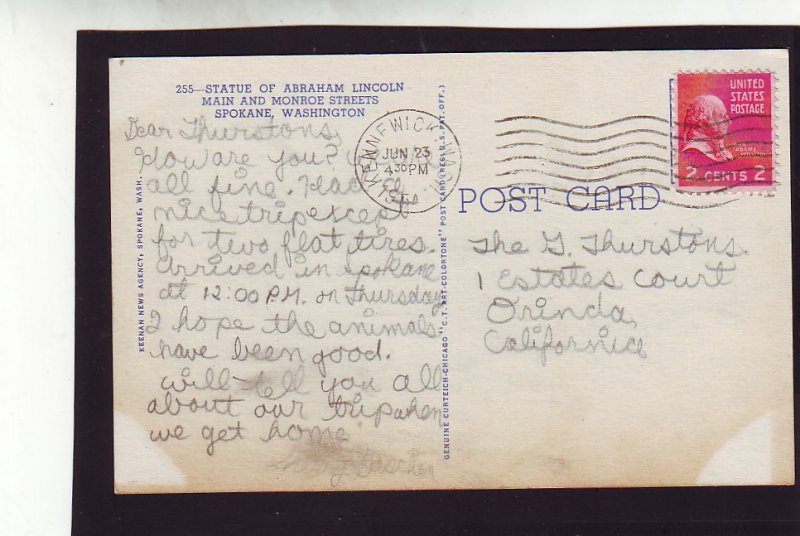 255—STATUE OF ABRAHAM LINCOLN
MAIN AND MONROE STREETS
SPOKANE, WASHINGTON
Dear Thurstons,
How are you?
all fine. Had a
nice trip except
for two flat tires.
arrived in Spokane
at 12:00 P.M. on Thursday
I hope the animals
have been good.
will tell you all
about our trip when
we get home
KEENAN NEWS AGENCY, SPOKANE, WASH.
GENUINE CURTEICH-CHICAGO "C.T. ART-COLORTONE" POST CARD (REG. U.S. PAT. OFF.)
KENNEWICK, WASH.
JUN 23
4 30 PM
UNITED
STATES
POSTAGE
2 CENTS 2
POST CARD
The G. Thurstons.
1 Estates Court
Orinda,
California